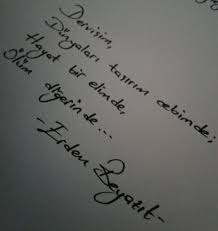 Dervişim,
Dünyaları taşırım cebimde;
Hayat bir elimde,
Ölüm diğerinde...
-Erdem Beyazıt-